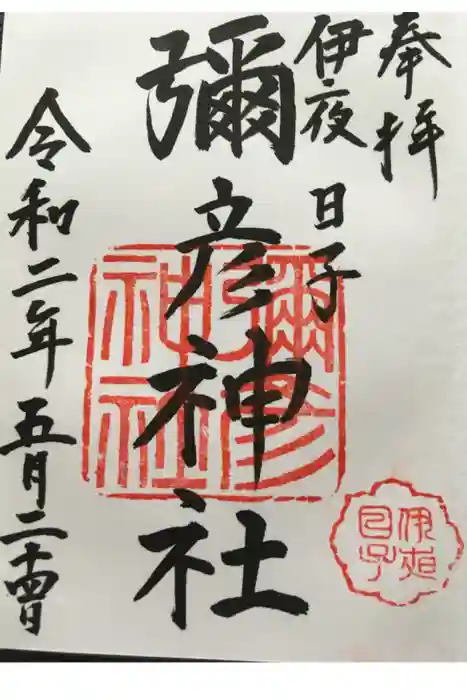 奉拝
伊夜日子
彌彦神社
令和二年五月二十四日
彌彦神社
伊夜日子